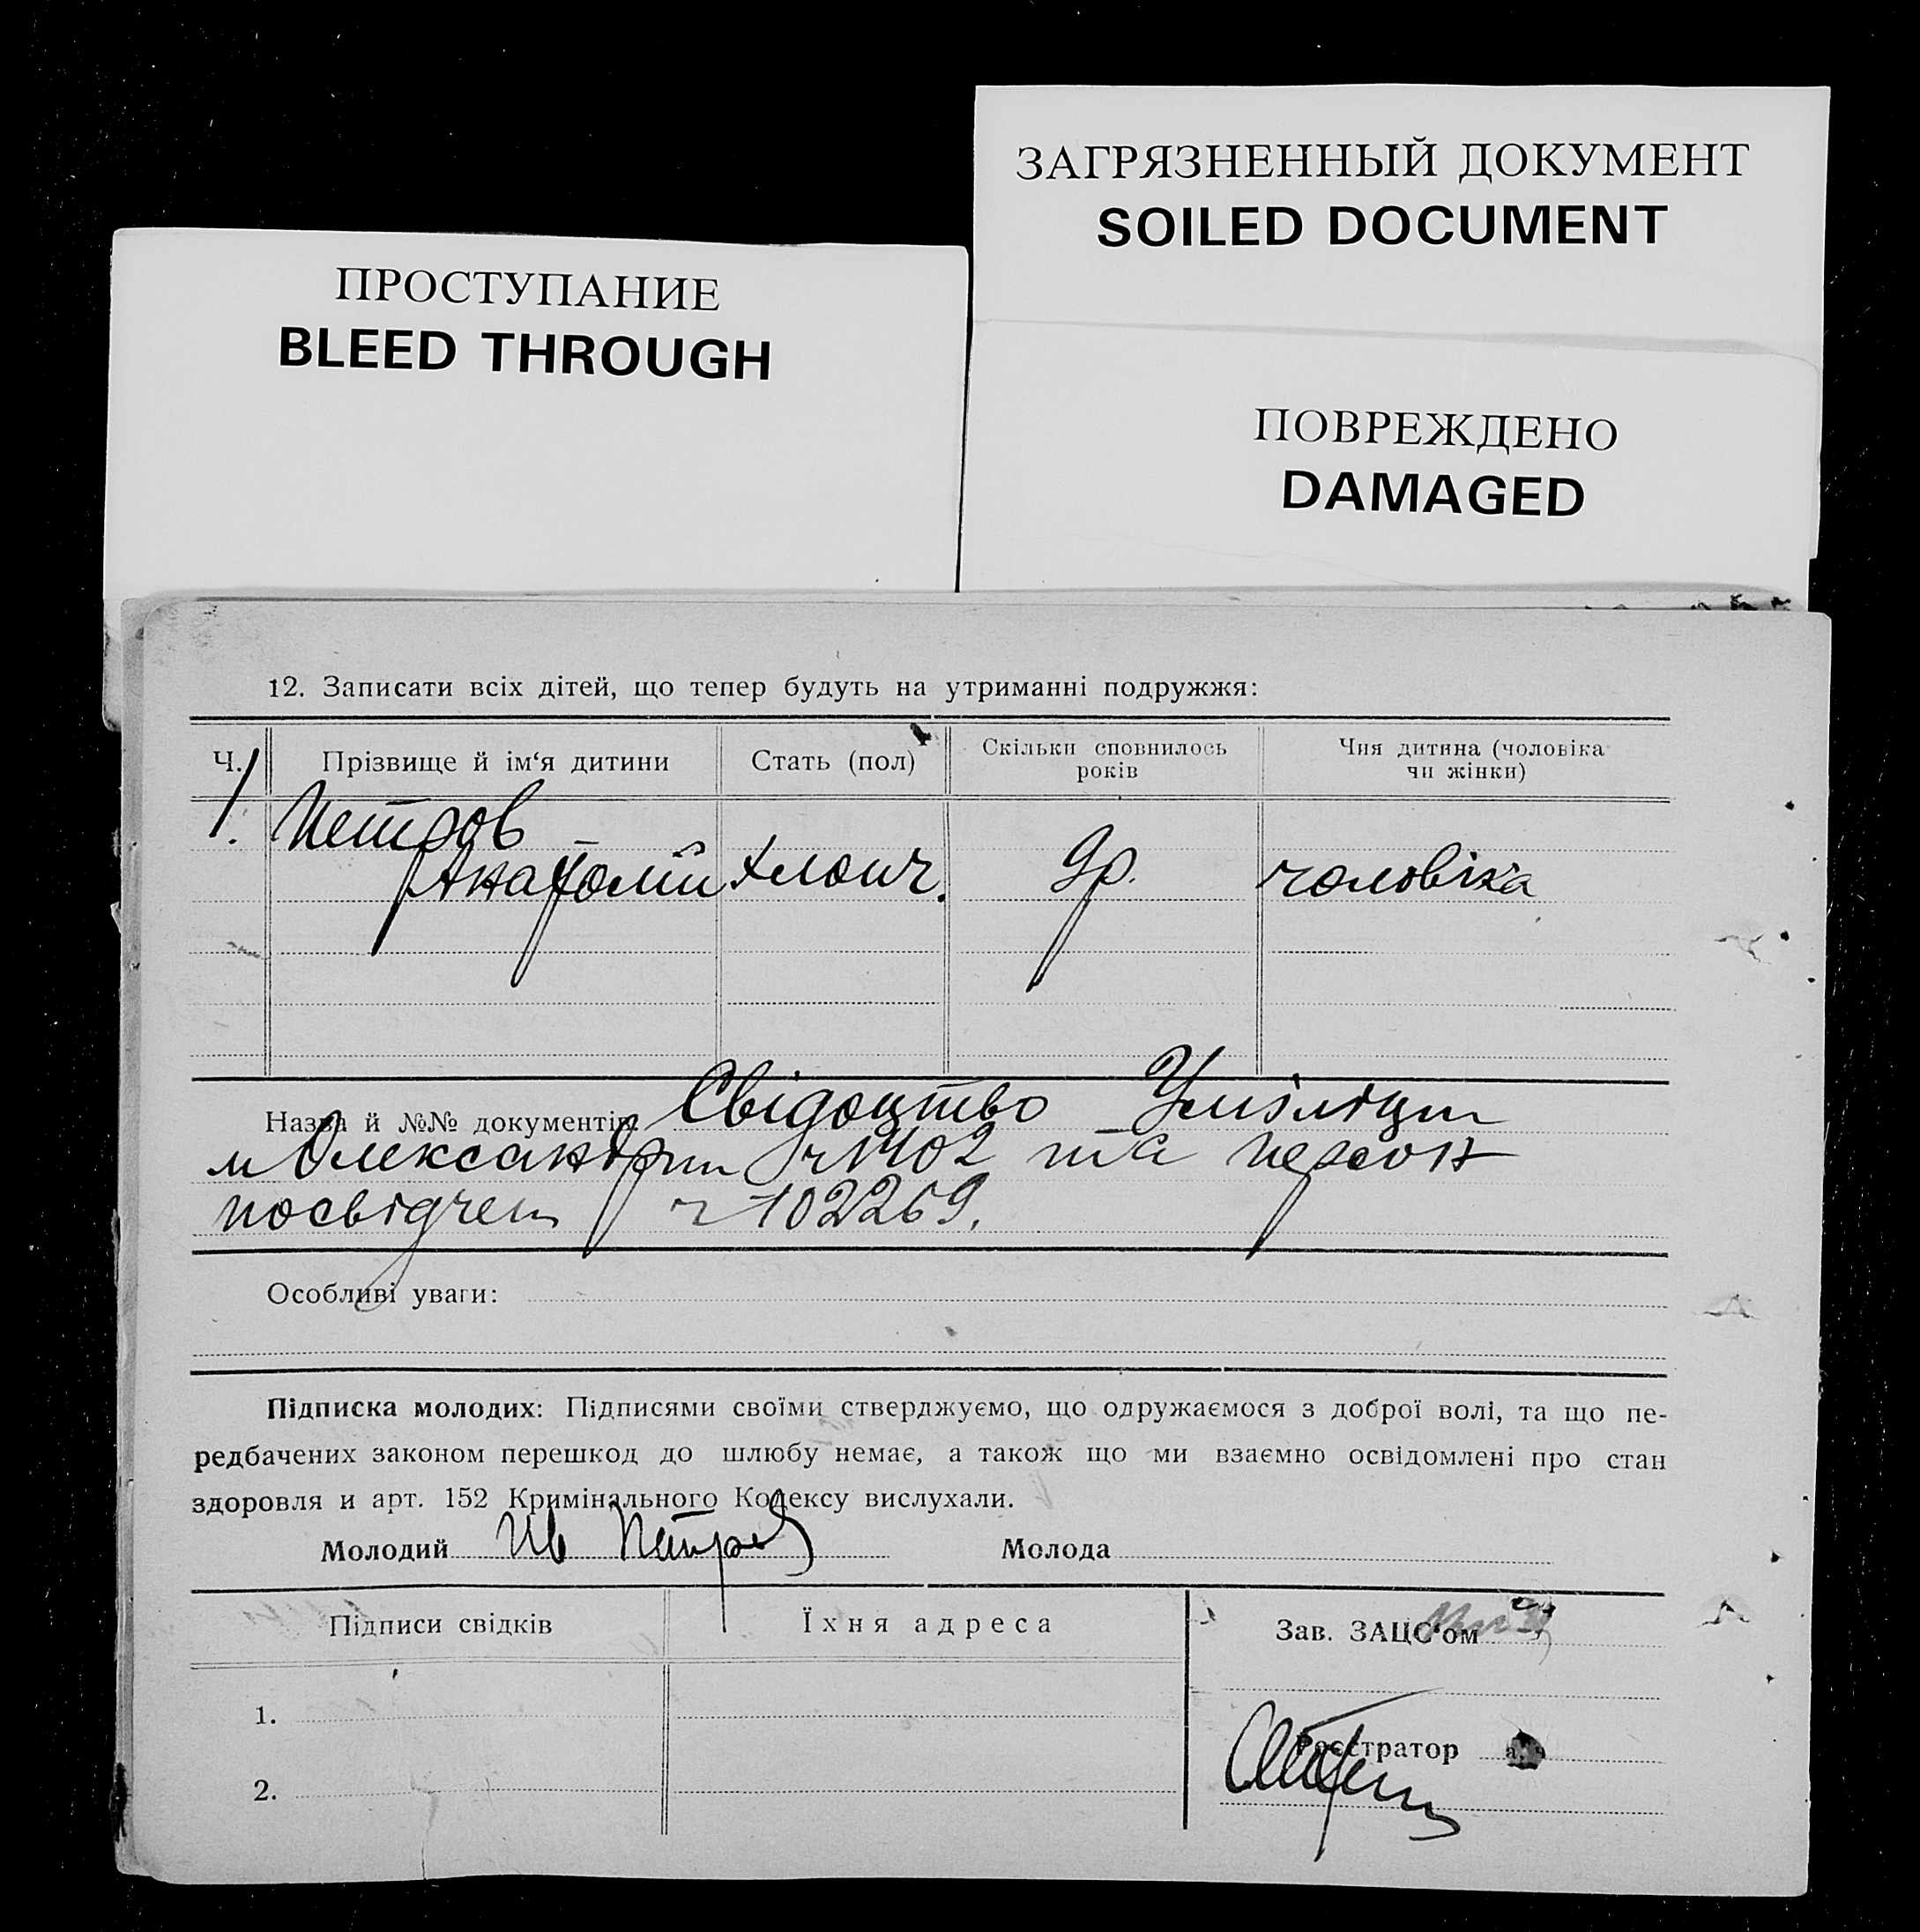 ЗАГРЯЗНЕННЫЙ ДОКУМЕНТ
SOILED DOCUMENT
ПРОСТУПАНИЕ
BLEED THROUGH
ПОВРЕЖДЕНО
DAMAGED
12. Записати всіх дітей, що тепер будуть на утриманні подружжя:
Ч. Прізвище й ім‘я дитини Стать (пол) Скільки сповнилось років Чия дитина (чоловіка чи жінки)
1. Петров
Анатолій хлопч. 9р. чоловіка
Назва й №№ документів: Свідоцтво
м Олександрії ч 1402 та персон
посвідчен ч 102269.
Особливі уваги:
Підписка молодих: Підписями своїми стверджуємо, що одружаємося з доброї волі, та що пе-
редбачених законом перешкод до шлюбу немає, а також що ми взаємно освідомлені про стан
здоровля и арт. 152 Кримінального Кодексу вислухали.
Молодий Ив Петров Молода
Підписи свідків Їхня адреса Зав. ЗАЦС‘ом
1.
Реєстратор
2.